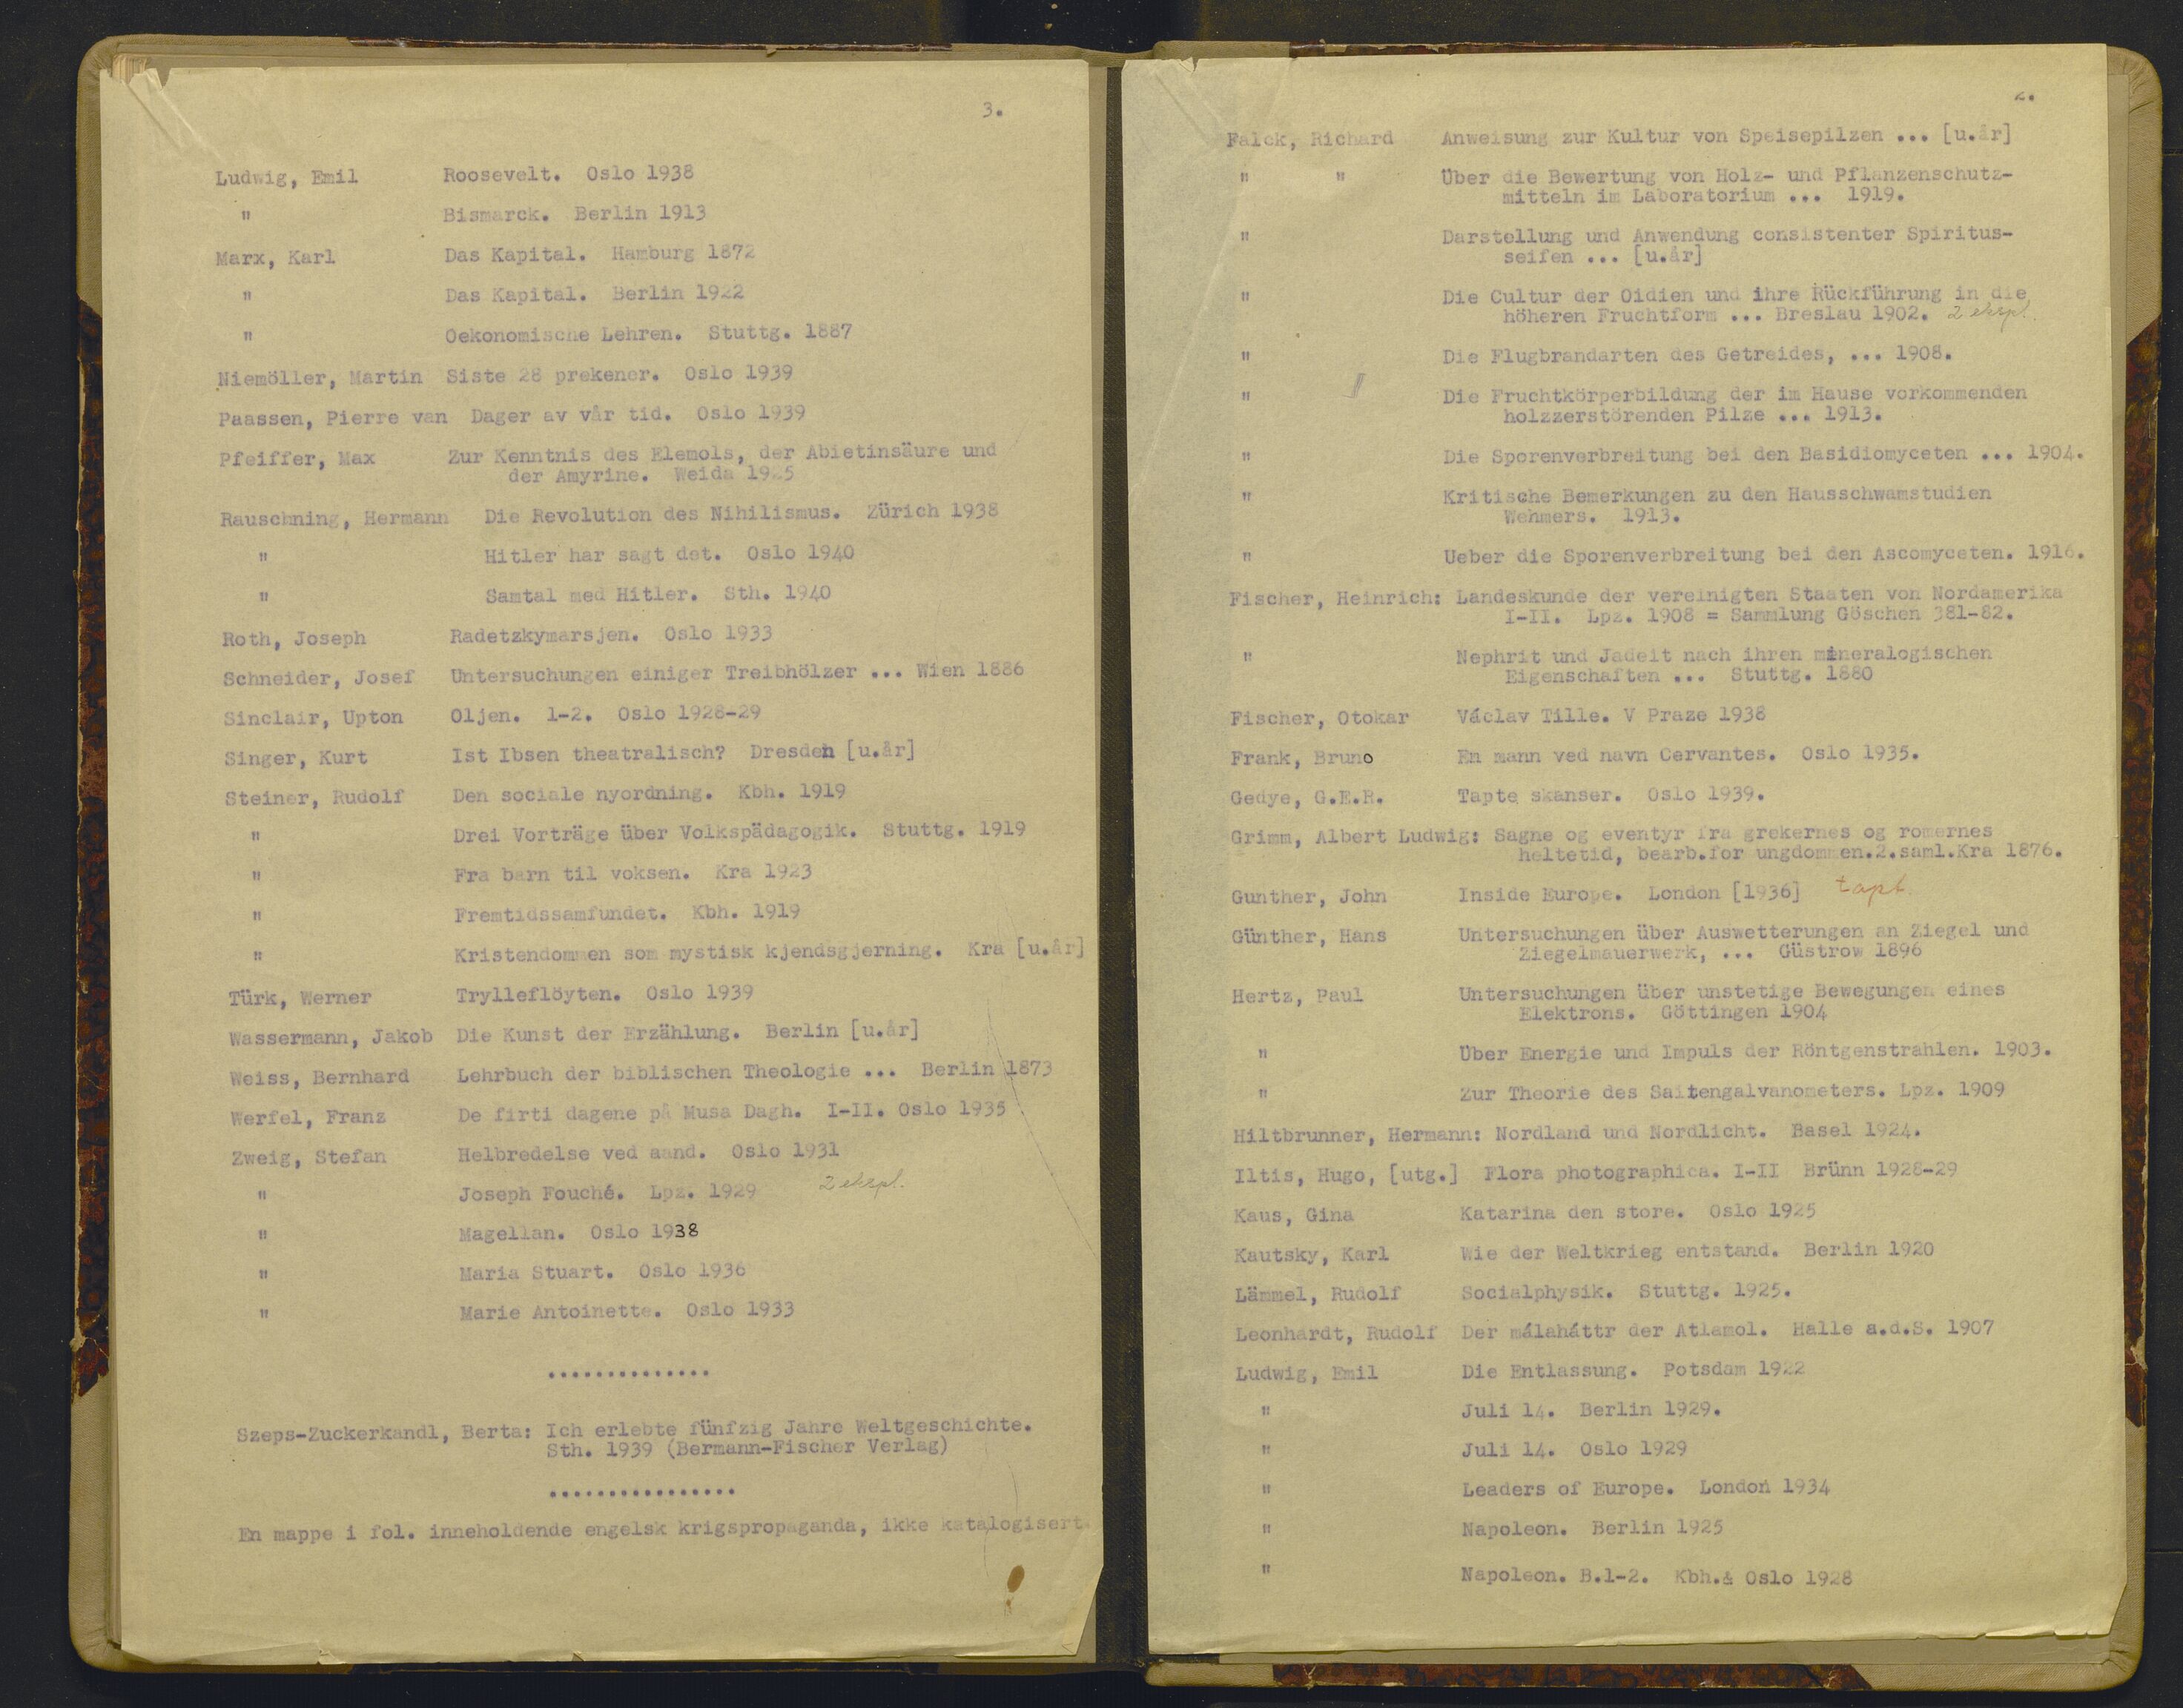 3.
Ludwig, Emil Roosevelt. Oslo 1938
" Bismarck. Berlin 1913
Marx, Karl Das Kapital. Hamburg 1872
" Das Kapital. Berlin 1922
" Oekonomische Lehren. Stuttg. 1887
Niemöller, Martin Siste 28 prekener. Oslo 1939
Paassen, Pierre van Dager av vår tid. Oslo 1939
Pfeiffer, Max Zur Kenntnis des Elemols, der Abietinsäure und
der Amyrine. Weida 1925
Rauschning, Hermann Die Revolution des Nihilismus. Zürich 1938
" Hitler har sagt det. Oslo 1940
" Samtal med Hitler. Sth. 1940
Roth, Joseph Radetzkymarsjen. Oslo 1933
Schneider, Josef Untersuchungen einiger Treibhölzer ... Wien 1886
Sinclair, Upton Oljen. 1-2. Oslo 1928-29
Singer, Kurt Ist Ibsen theatralisch? Dresden [u.år]
Steiner, Rudolf Den sociale nyordning. Kbh. 1919
" Drei Vorträge über Volkspädagogik. Stuttg. 1919
" Fra barn til voksen. Kra 1923
" Fremtidssamfundet. Kbh. 1919
" Kristendommen som mystisk kjendsgjerning. Kra [u.år]
Türk, Werner Trylleflöyten. Oslo 1939
Wassermann, Jakob Die Kunst der Erzählung. Berlin [u.år]
Weiss, Bernhard Lehrbuch der biblischen Theologie ... Berlin 1873
Werfel, Franz De firti dagene på Musa Dagh. I-II. Oslo 1935
Zweig, Stefan Helbredelse ved aand. Oslo 1931
" Joseph Fouché. Lpz. 1929 2 ekspl.
" Magellan. Oslo 1938
" Maria Stuart. Oslo 1936
" Marie Antoinette. Oslo 1933
..............
Szeps-Zuckerkandl, Berta: Ich erlebte fünfzig Jahre Weltgeschichte.
Sth. 1939 (Bermann-Fischer Verlag)
................
En mappe i fol. inneholdende engelsk krigspropaganda, ikke katalogisert.
2.
Falck, Richard Anweisung zur Kultur von Speisepilzen ... [u.år]
" " Über die Bewertung von Holz- und Pflanzenschutz-
mitteln im Laboratorium ... 1919.
" Darstellung und Anwendung consistenter Spiritus-
seifen ... [u.år]
" Die Cultur der Oidien und ihre Rückführung in die
höheren Fruchtform ... Breslau 1902. 2 ekspl.
" Die Flugbrandarten des Getreides, ... 1908.
" Die Fruchtkörperbildung der im Hause vorkommenden
holzzerstörenden Pilze ... 1913.
" Die Sporenverbreitung bei den Basidiomyceten ... 1904.
" Kritische Bemerkungen zu den Hausschwamstudien
Wehmers. 1913.
" Ueber die Sporenverbreitung bei den Ascomyceten. 1916.
Fischer, Heinrich: Landeskunde der vereinigten Staaten von Nordamerika
I-II. Lpz. 1908 = Sammlung Göschen 381-82.
" Nephrit und Jadeit nach ihren mineralogischen
Eigenschaften ... Stuttg. 1880
Fischer, Otokar Václav Tille. V Praze 1938
Frank, Bruno En mann ved navn Cervantes. Oslo 1935.
Gedye, G.E.R. Tapte skanser. Oslo 1939.
Grimm, Albert Ludwig: Sagne og eventyr fra grekernes og romernes
heltetid, bearb.for ungdommen.2.saml.Kra 1876.
Gunther, John Inside Europe. London [1936] tapt.
Günther, Hans Untersuchungen über Auswetterungen an Ziegel und
Ziegelmauerwerk, ... Güstrow 1896
Hertz, Paul Untersuchungen über unstetige Bewegungen eines
Elektrons. Göttingen 1904
" Über Energie und Impuls der Röntgenstrahlen. 1903.
" Zur Theorie des Saitengalvanometers. Lpz. 1909
Hiltbrunner, Hermann: Nordland und Nordlicht. Basel 1924.
Iltis, Hugo, [utg.] Flora photographica. I-II Brünn 1928-29
Kaus, Gina Katarina den store. Oslo 1925
Kautsky, Karl Wie der Weltkrieg entstand. Berlin 1920
Lämmel, Rudolf Socialphysik. Stuttg. 1925.
Leonhardt, Rudolf Der málaháttr der Atlamol. Halle a.d.S. 1907
Ludwig, Emil Die Entlassung. Potsdam 1922
" Juli 14. Berlin 1929.
" Juli 14. Oslo 1929
" Leaders of Europe. London 1934
" Napoleon. Berlin 1925
" Napoleon. B.1-2. Kbh.& Oslo 1928